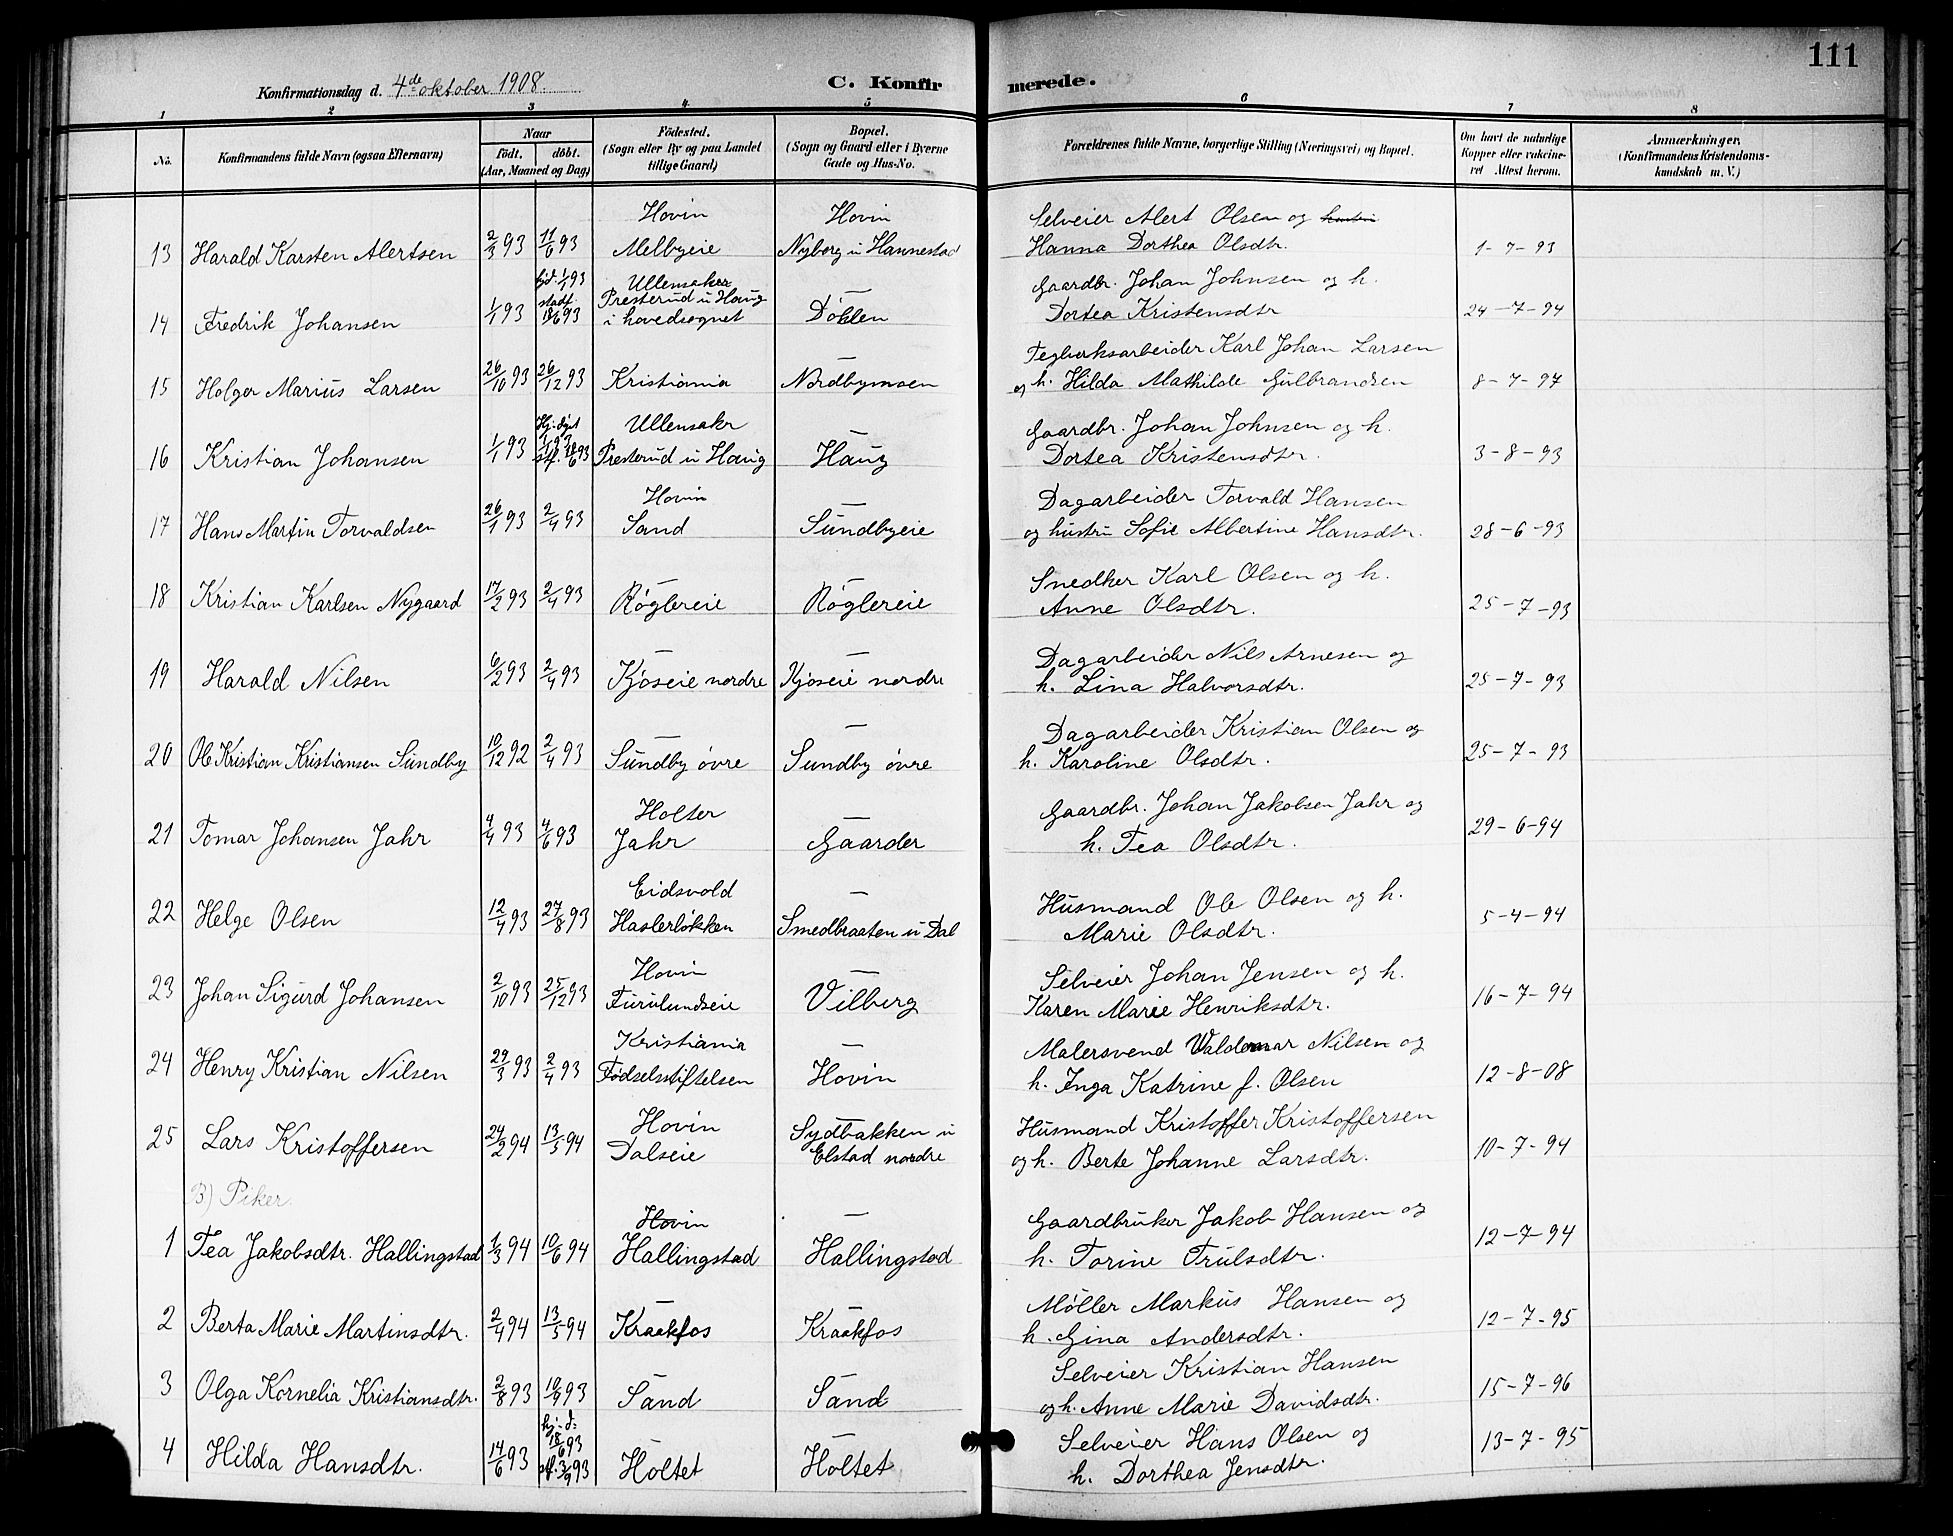 111
Konfirmationsdag d. 4de oktober 1908.
C. Konfirmerede.
1 2 3 4 5 6 7 8
No. Konfirmandens fulde Navn (ogsaa Efternavn) Naar født. døbt. (Aar, Maaned og Dag) Fødested. (Sogn eller By og paa Landet tillige Gaard) Bopæl. (Sogn og Gaard eller i Byerne Gade og Hus-No. Forældrenes fulde Navne, borgerlige Stilling (Næringsvei) og Bopæl. Om havt de naturlige Kopper eller vakcineret Attest herom. Anmærkninger, (Konfirmandens Kristendomskundskab m. V.)
Hovin Hovin Selveier Alert Olsen og hustru
13 Harald Karsten Alertsen 2/3 93 11/6 93 Melbyeie Nyborg u Hannestad Hanna Dorthea Olsdtr. 1-7-93
hjd. 1/1 93 Ullensaker — Gaardbr. Johan Johnsen og h.
stadf. Presterud u Haug
14 Fredrik Johansen 1/1 93 18/6 93 i hovedsognet Døhlen Dortea Kristensdtr 24-7-94
Teglverksarbeider Karl Johan Larsen
15 Holger Marius Larsen 26/10 93 26/12 93 Kristiania Nordbymoen og h. Hilda Mathilde Gulbrandsen 8-7-97
Hj. døpt Ullensaker — Gaardbr. Johan Johnsen og h.
16 Kristian Johansen 1/1 93 1/1 93 stf. 18/6 93 Presterud u Haug Haug Dortea Kristensdtr. 3-8-93
Hovin — Dagarbeider Torvald Hansen
17 Hans Martin Torvaldsen 26/1 93 2/4 93 Sand Sundbyeie og hustru Sofie Albertine Hansdtr. 28-6-93
— — Snedker Karl Olsen og h.
18 Kristian Karlsen Nygaard 17/2 93 2/4 93 Røglereie Røglereie Anne Olsdtr. 25-7-93
— — Dagarbeider Nils Arnesen og
19 Harald Nilsen 6/2 93 2/4 93 Kjøseie nordre Kjøseie nordre h. Lina Halvorsdtr. 25-7-93
— — Dagarbeider Kristian Olsen og
20 Ole Kristian Kristiansen Sundby 10/12 92 2/4 93 Sundby øvre Sundby øvre h. Karoline Olsdtr. 25-7-93
Holter — Gaardbr. Johan Jakobsen Jahr og
21 Tomar Johansen Jahr 4/4 93 4/6 93 Jahr Gaarder h. Tea Olsdtr. 29-6-94
Eidsvold — Husmand Ole Olsen og h.
22 Helge Olsen 12/4 93 27/8 93 Haslerløkken Smedbraaten u Dal Marie Olsdtr. 5-4-94
Hovin — Selveier Johan Jensen og h.
23 Johan Sigurd Johansen 2/10 93 25/12 93 Furulundseie Vilberg Karen Marie Henriksdtr. 16-7-94
Kristiania — Malersvend Valdemar Nilsen og
24 Henry Kristian Nilsen 29/3 93 2/4 93 Fødselsstiftelsen Hovin h. Inga Katrine f. Olsen 12-8-08
Hovin Sydbakken u Husmand Kristoffer Kristoffersen
25 Lars Kristoffersen 24/2 94 13/5 94 Dalseie Elstad nordre og h. Berte Johanne Larsdtr. 10-7-94
B) Piker.
Hovin — Gaardbruker Jakob Hansen og
1 Tea Jakobsdtr. Hallingstad 1/3 94 10/6 94 Hallingstad Hallingstad h. Torine Trulsdtr. 12-7-94
— — Møller Markus Hansen og
2 Berta Marie Martinsdtr. 2/4 94 13/5 94 Kraakfos Kraakfos h. Gina Andersdtr. 12-7-95
— — Selveier Kristian Hansen
3 Olga Kornelia Kristiansdtr. 2/8 93 10/9 93 Sand Sand og h. Anne Marie Davidsdtr. 15-7-96
hj. d. 18/6 93 — — Selveier Hans Olsen og
4 Hilda Hansdtr. 14/6 93 stf. 3/9 93 Holtet Holtet h. Dorthea Jensdtr. 13-7-95